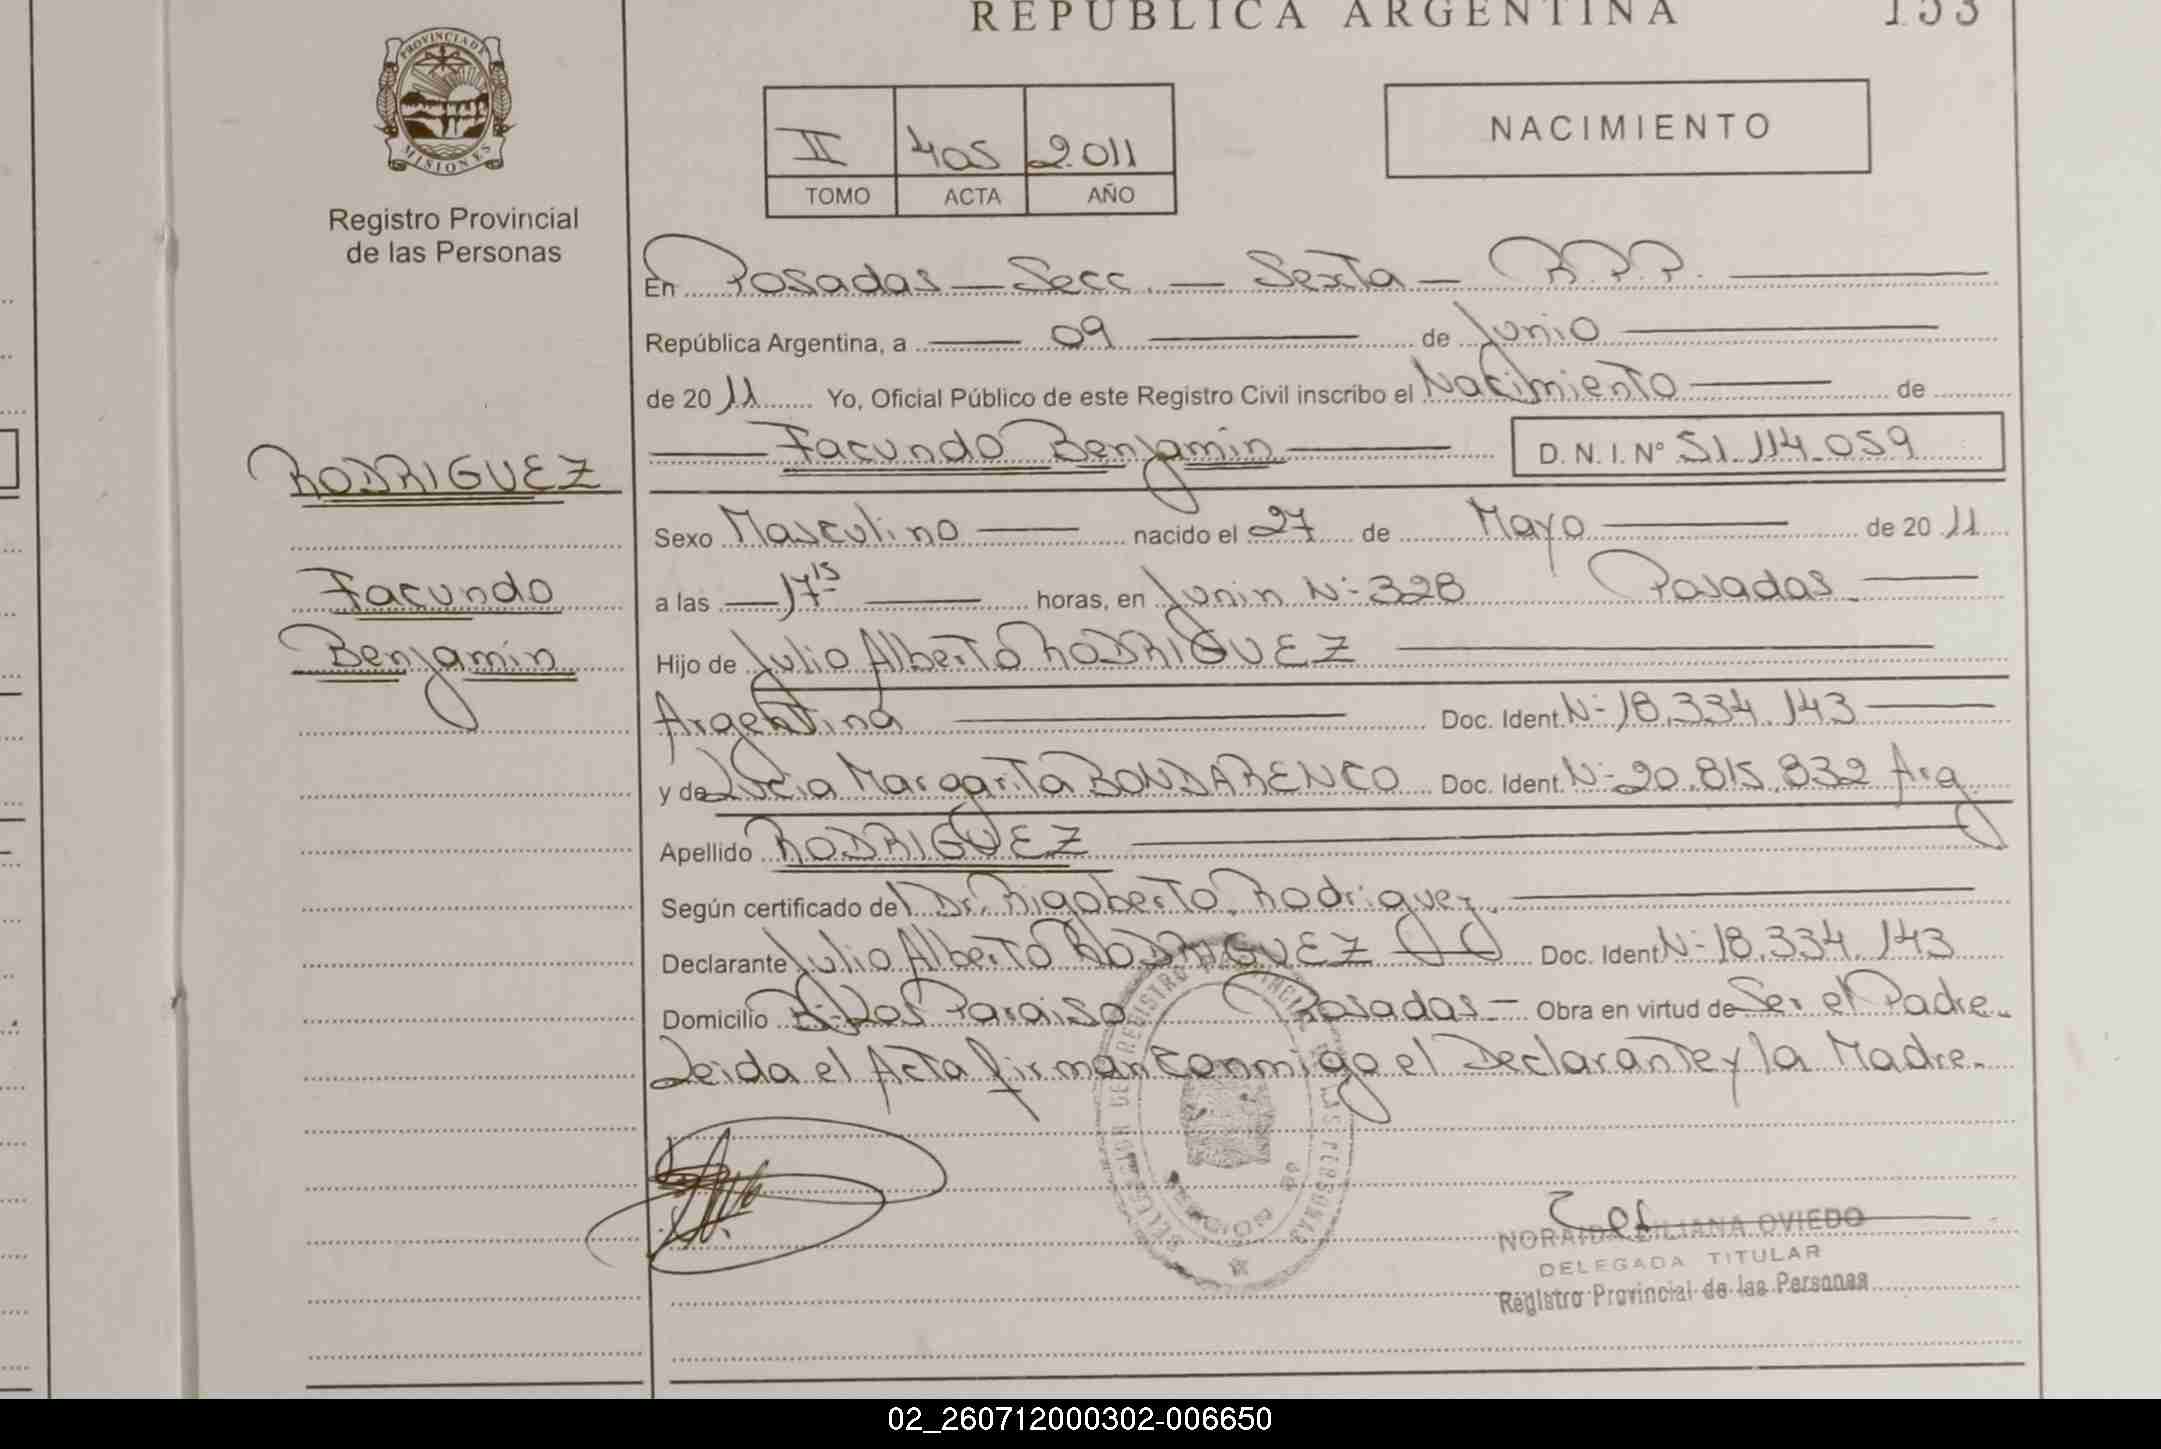 REPUBLICA ARGENTINA
153
PROVINCIA DE
MISIONES
Registro Provincial
de las Personas
II 405 2011
TOMO ACTA AÑO
NACIMIENTO
En Posadas — Secc. — Sexta — R.P.P.
República Argentina, a 09 de Junio
de 2011 Yo, Oficial Público de este Registro Civil inscribo el Nacimiento de
Facundo Benjamín D.N.I. Nº 51.114.059
RODRIGUEZ
Facundo
Benjamín
Sexo Masculino nacido el 27 de Mayo de 2011
a las 17 15 horas, en Junin Nº 328 Posadas
Hijo de Julio Alberto RODRIGUEZ
Argentina Doc. Ident. Nº 18.334.143
y de Lucia Margarita BONDARENCO Doc. Ident. Nº 20.815.832 Arg
Apellido RODRIGUEZ
Según certificado del Dr. Rigoberto Rodriguez
Declarante Julio Alberto RODRIGUEZ Doc. Ident. Nº 18.334.143
Domicilio Bº Los Paraiso Posadas — Obra en virtud de Ser el Padre
Leida el Acta firman conmigo el Declarante y la Madre.
NORAIDA LILIANA OVIEDO
DELEGADA TITULAR
Registro Provincial de las Personas
02_260712000302-006650